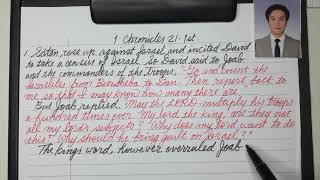 1 Chronicles 21-1st
1. Satan rose up against Israel and incited David
to take a census of Israel. So David said to Joab
and the commanders of the troops, "Go and count the
Israelites from Beersheba to Dan. Then report back to
me so that I may know how many there are."
But Joab replied. "May the LORD multiply his troops
a hundred times over. My lord the king, are they not
all my lord's subjects? Why does my lord want to do
this? Why should he bring guilt on Israel?"
The king's word, however overruled Joab